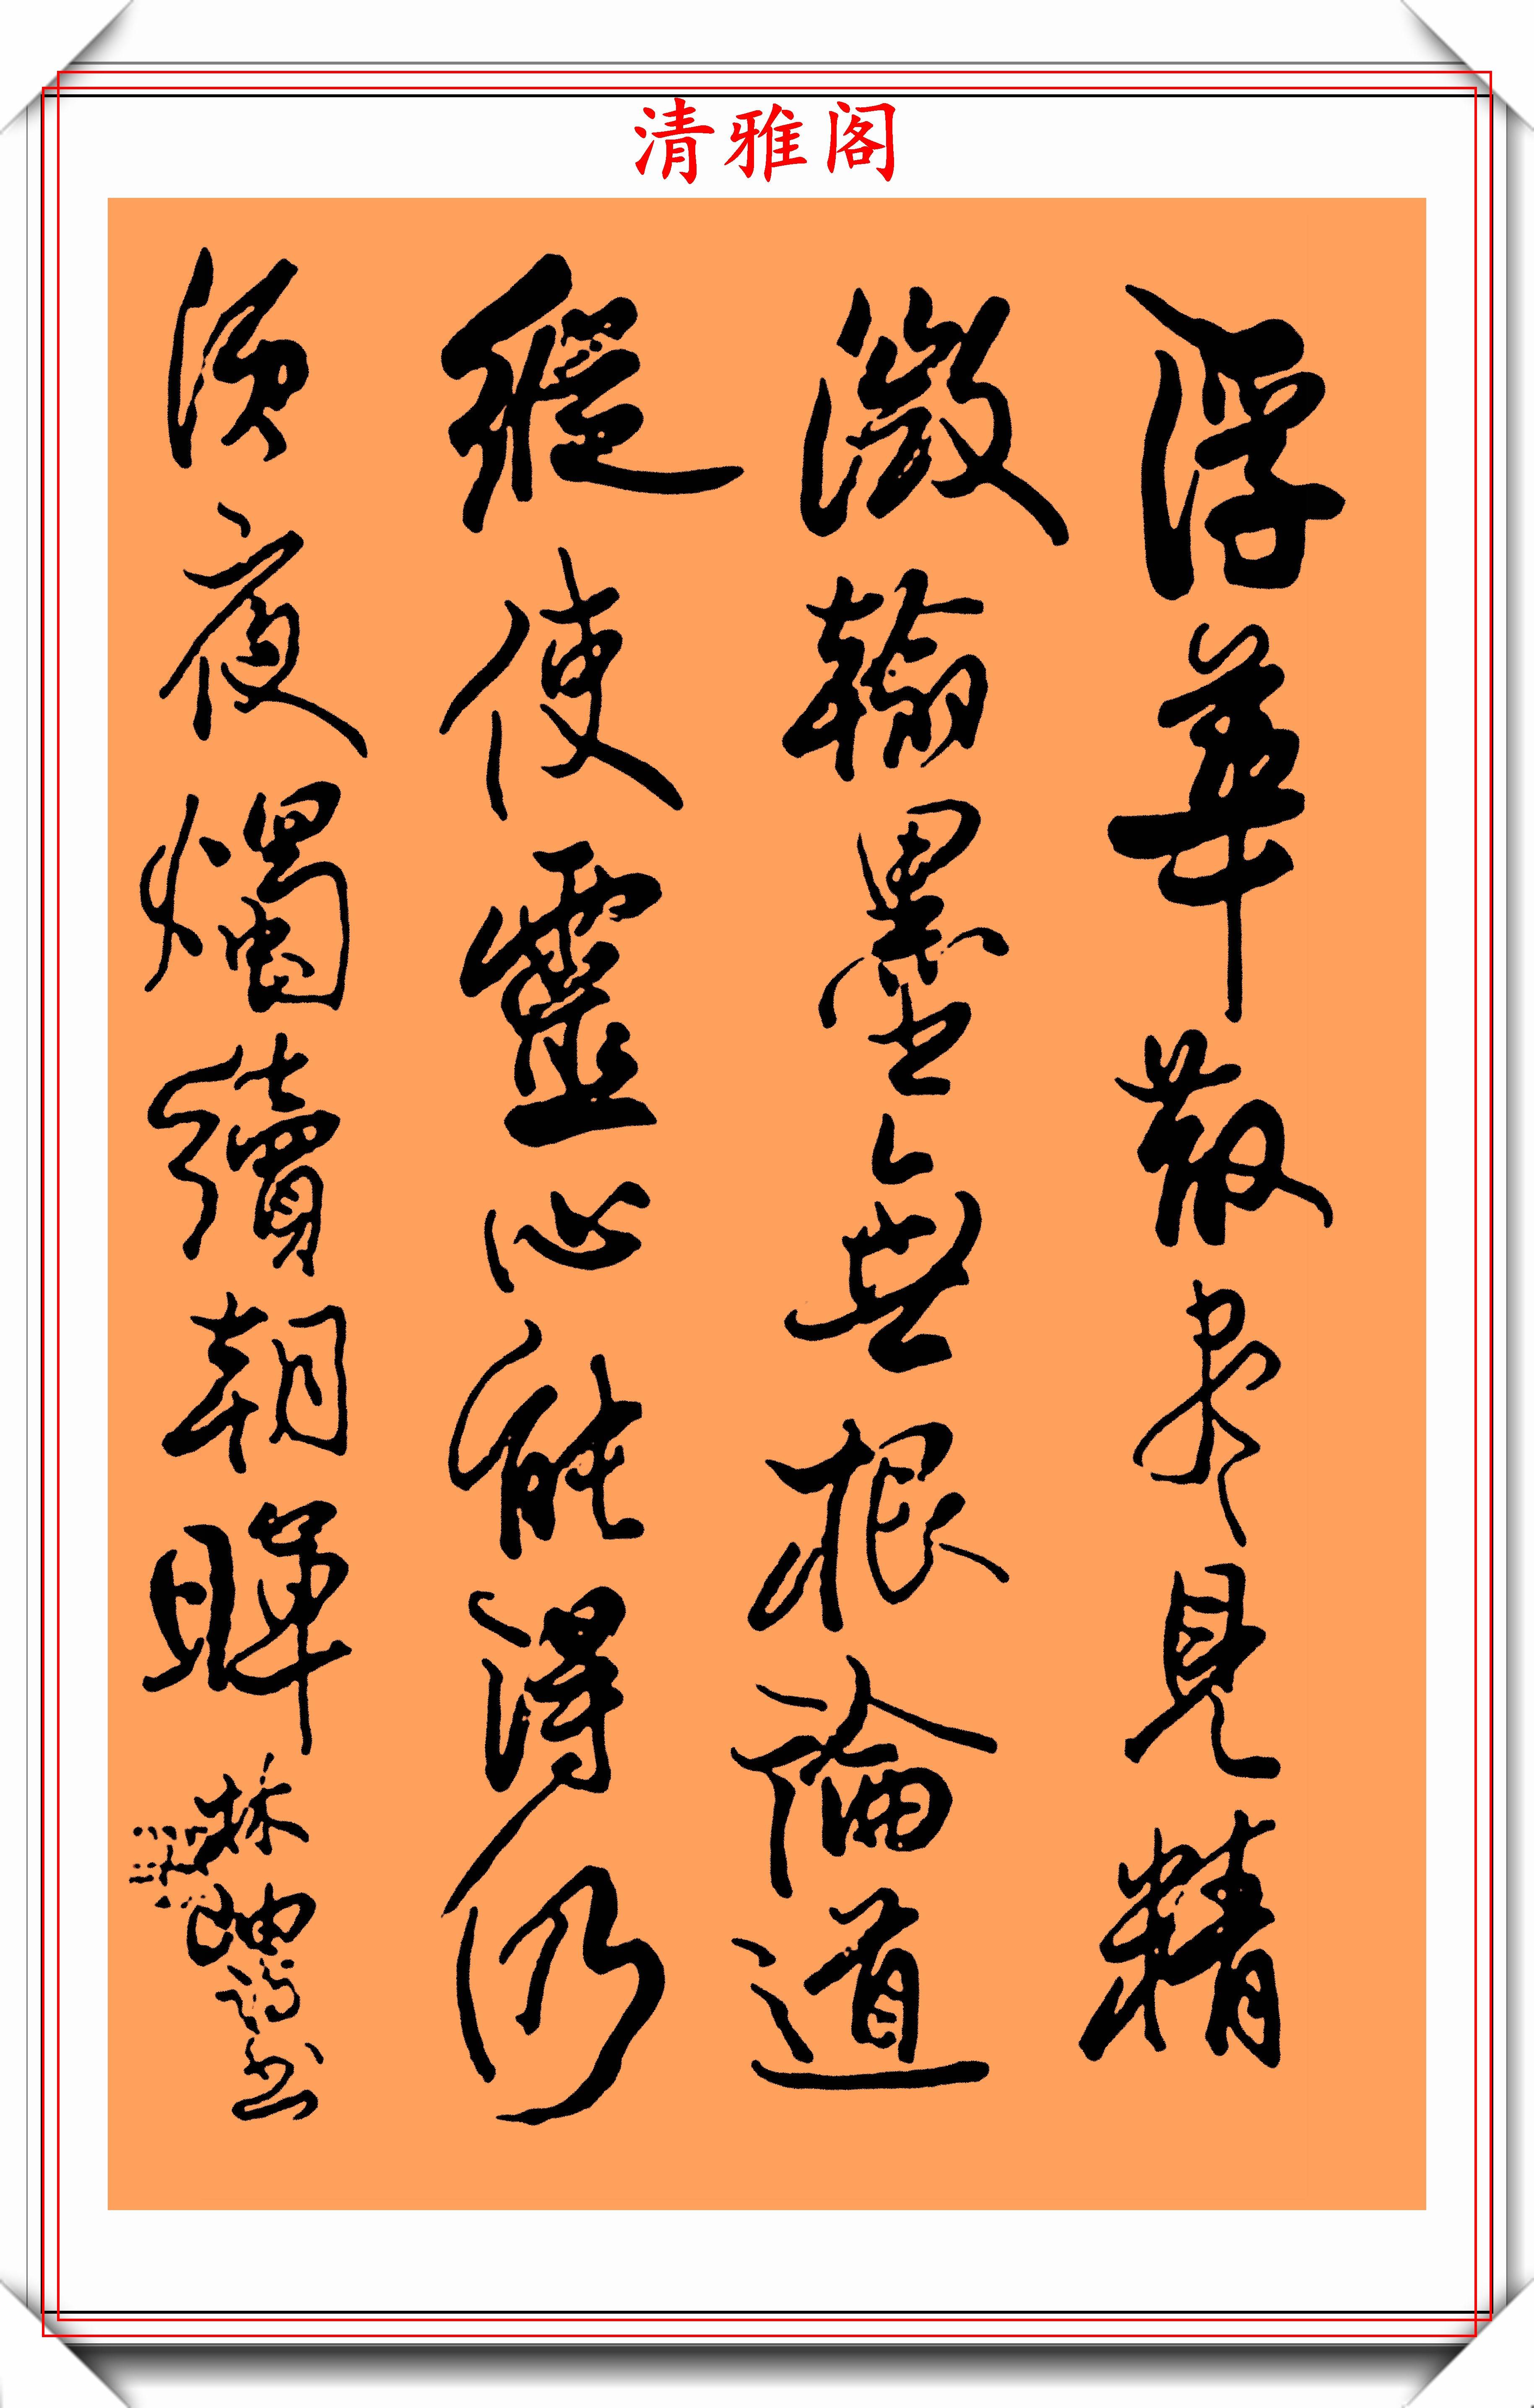 清雅阁
浮華散盡見精
微翰墨無根論道
縱使靈心能得仍
須夜燭續朝暉
林岫詩書